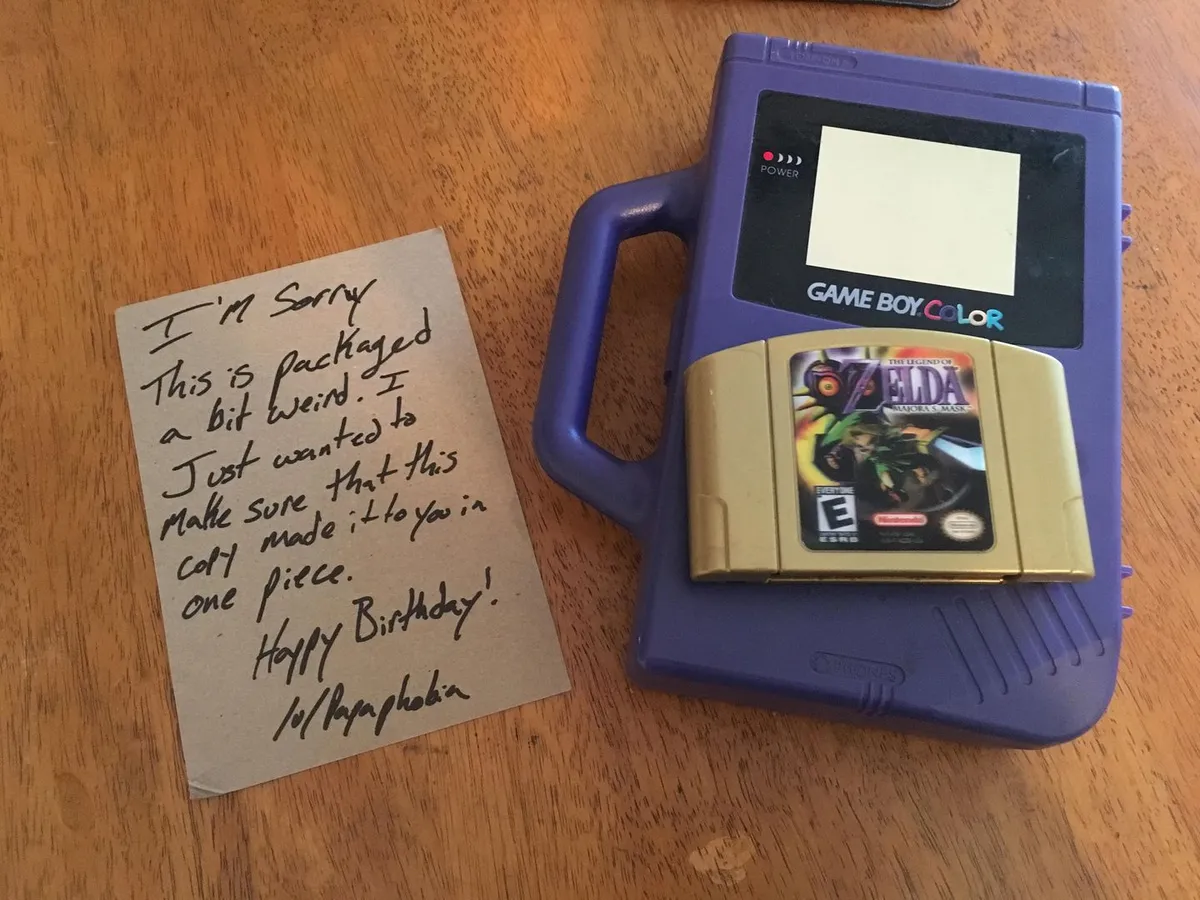 I'm Sorry
This is packaged
a bit weird. I
Just wanted to
make sure that this
copy made it to you in
one piece.
Happy Birthday!
/u/Papaphobia
POWER
GAME BOY COLOR
THE LEGEND OF
ZELDA
MAJORA'S MASK
EVERYONE
E
ESRB
Nintendo